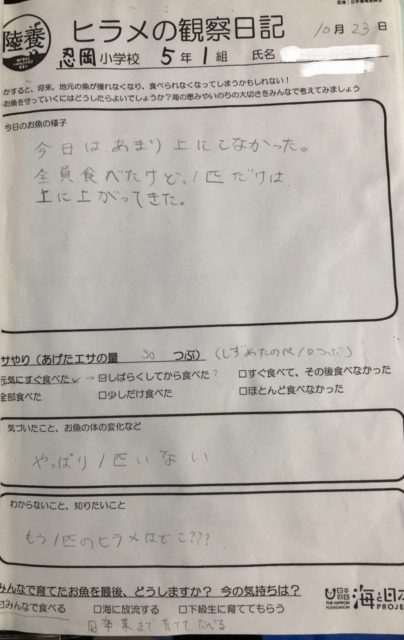 陸養
ヒラメの観察日記
10月23日
忍岡小学校 5年1組 氏名
かすると、将来、地元の魚が獲れなくなり、食べられなくなってしまうかもしれない！
お魚を守っていくにはどうしたらよいでしょうか？海の恵みやいのちの大切さをみんなで考えてみましょう
今日のお魚の様子
今日は、あまり上にこなかった。
全員食べたけど、1匹だけは、
上に上がってきた。
サやり（あげたエサの量 30 つぶ）（しずめたのは10つぶ）
元気にすぐ食べた □しばらくしてから食べた? □すぐ食べて、その後食べなかった
全部食べた □少しだけ食べた □ほとんど食べなかった
気づいたこと、お魚の体の変化など
やっぱり1匹いない
わからないこと、知りたいこと
もう1匹のヒラメはどこ???
みんなで育てたお魚を最後、どうしますか？ 今の気持ちは？
みんなで食べる □海に放流する □下級生に育ててもらう
育ててたべる
日本財団
THE NIPPON FOUNDATION
海と日本
PROJE